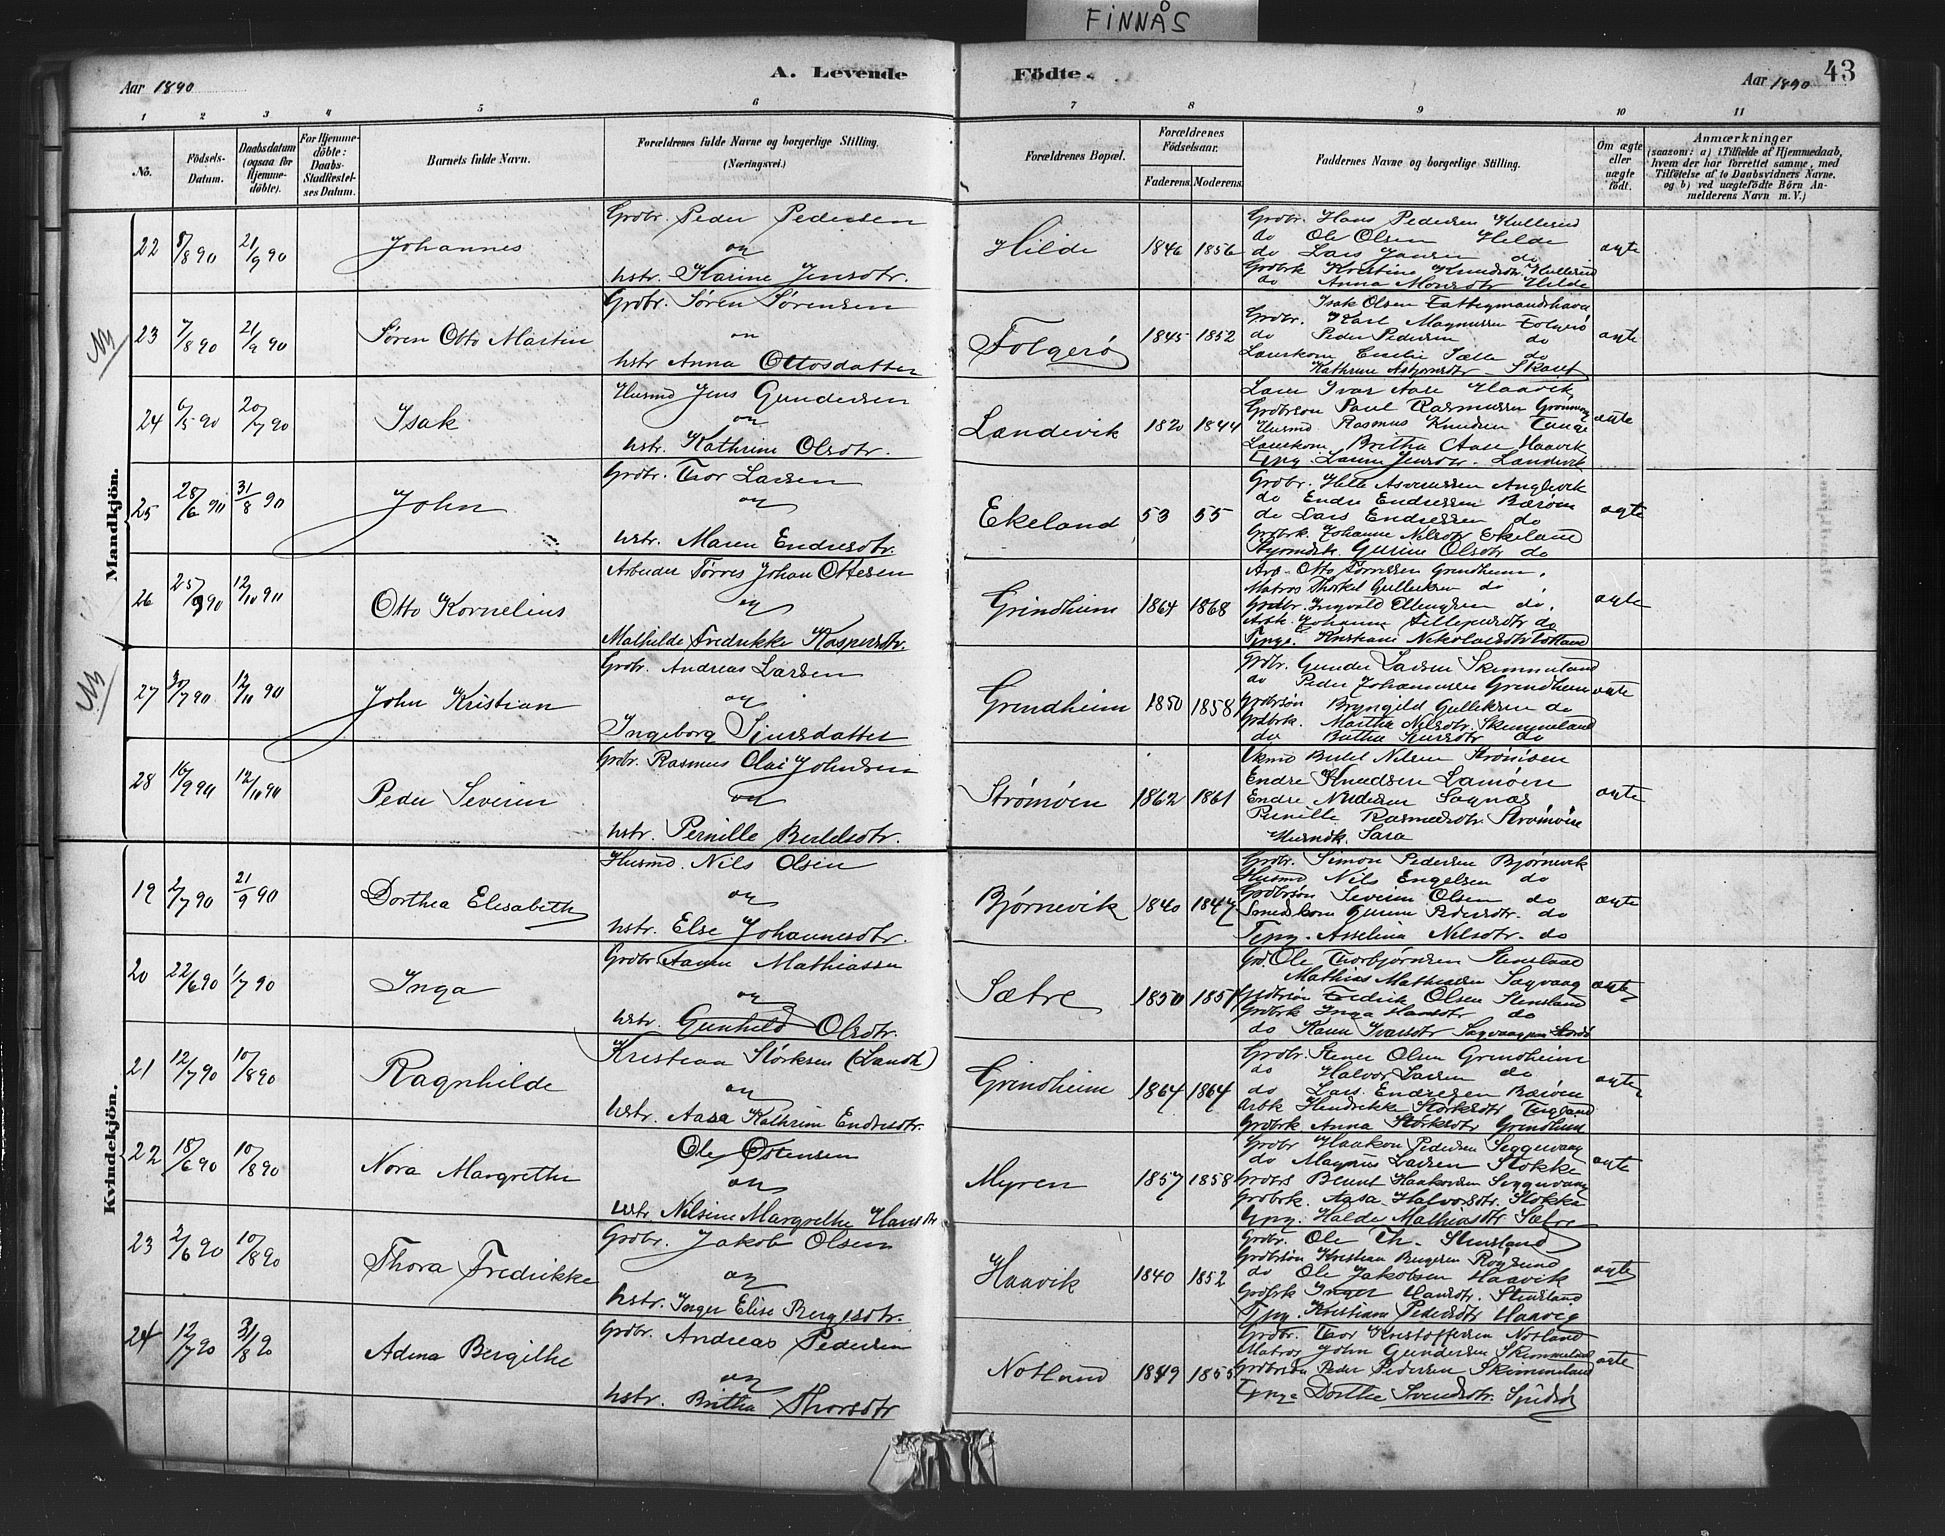 FINNÅS
Aar 1890
A. Levende
Födte.
Aar 1890
43
1 2 3 4 5 6 7 8 9 10 11
No.
Födsels-Datum.
Daabsdatum (ogsaa for Hjemmedöbte).
For Hjemmedöbte: Daabs-Stadfestelses Datum.
Barnets fulde Navn.
Forældrenes fulde Navne og borgerlige Stilling. (Næringsvei.)
Forældrenes Bopæl.
Forældrenes Födselsaar.
Faderens. Moderens.
Faddernes Navne og borgerlige Stilling.
Om ægte eller uægte födt.
Anmærkninger
(saasom: a) i Tilfælde af Hjemmedaab, hvem der har forrettet samme, med Tilföielse af to Daabsvidners Navne, og b) ved uægtefödte Börn Anmelderens Navn m. V.)
Mandkjön.
22 8/8 90 21/9 90 Johannes
Grdbr. Peder Pedersen
og
hstr. Karine Jensdtr.
Hilde 1846 1856
Grdbr. Hans Pedersen Kulleseid
do Ole Olsen Hilde
do Lars Jansen do
Grdbrk Kristine Knudsdtr Kulleseid
do Anna Monsdtr Hilde
ægte
23 7/8 90 21/9 90 Søren Otto Martin
Grdbr. Søren Sørensen
og
hstr Anna Ottosdatter
Folgerø 1845 1852
Isak Olsen Fattigmandshavn
Grdbr. Karl Magnussen Folgerø
do Peder Pedersen do
Lærerkone Emilie Sætte do
Kathrine Asbjørnsdtr
ægte
24 6/5 90 20/7 90 Isak
Husmd Jens Gundersen
og
hstr. Kathrine Olsdtr.
Landevik 1820 1844
Lærer Ivar Aase Haavik
Grdbrsøn Paul Rasmussen
Husmd Rasmus Knudsen
Lærerkone Britha Aase Haavik
Tjpig. Laurine Jensdtr. Landevik
ægte
25 28/6 90 31/8 90 John
Grdbr. Thor Larsen
og
hstr. Maren Endresdtr.
Ekeland 53 55
Grdbr. Helle Asmussen Anglevik
do Endre Endressen Bærøen
do Lars Endressen do
Grdbrk Johanne Nilsdtr Ekeland
Gurine Olsdtr do
ægte
26 25/9 90 12/10 90 Otto Kornelius
Arbeider Torres Johan Ottesen
og
Mathilde Fredrikke Kaspersdtr.
Grindheim 1864 1868
Arb. Otto Torressen Grindheim,
Matros Thorkel Gulleksen do
Grdbr. Ingvald Ellingsen do,
Arbk. Johanne do
Tjpige. Kristiane Nikolaisdtr
ægte
27 30/7 90 12/10 90 John Kristian
Grdbr. Andreas Larsen
og
Ingeborg Sjursdatter
Grindheim 1850 1858
Grdbr. Gunder Larsen Skimmeland
do Peder Johannessen Grindheim
Grdbrsøn Bryngild Gulleksen do
Grdbrk. Martha Nilsdtr. Skimmeland
do Britha Sjursdtr do
ægte
28 16/9 90 12/10 90 Peder Severin
Grdbr. Rasmus Olai Johnsen
og
hstr. Pernille Bertelsdtr.
Strømøen 1862 1861
Bertel Nilsen Strømøen
Endre Knudsen Lamøen
Endre Sagnæs
Pernille Rasmusdtr Strømøen
Husmdk. Sara
ægte
Kvindekjön.
19 2/7 90 21/9 90 Dorthea Elisabeth
Husmd. Nils Olsen
og
hstr. Else Johannesdtr.
Bjørnevik 1840 1847
Grdbr. Simon Pedersen Bjørnevik
Husmd Nils Engelsen do
Grdbrsøn Severin Olsen do
Smedkone Gurine Pedersdtr. do
Tjpig. Asseline Nilsdtr. do
ægte
20 22/6 90 1/7 90 Inga
Grdbr. Aamun Mathiassen
og
hstr. Gunhild Olsdtr.
Sætre 1850 1851
Grd. Ole Thorbjørnsen Stensland
Mathias Mathiassen Sagvaag
Grdbrsøn Fredrik Olsen Stensland
Grdbrk Inga Hansdtr do
do Karen Ivarsdtr Sagvaagen Stordø
ægte
21 12/7 90 10/8 90 Ragnhilde
Kristian Størksen (Sandt)
og
hstr. Aasa Kathrine Endresdtr.
Grindheim 1864 1864
Grdbr. Stener Olsen Grindheim
do Halvor Larsen do
do Lars Endresen Bærøen
Arbk Hendrikke Størksdtr
Grdbrk Anna Størksdtr Grindheim
ægte
22 18/6 90 10/8 90 Nora Margrethe
Ole Østensen
og
hstr. Nilsine Margrethe Hansdtr
Myren 1857 1858
Grdbr Haakon Pedersen Siggevaag
do Magnus Larsen Stokke
Grdbrs Bernt Haakonsen Siggevaag
Grdbrk. Aasa Halvorsdtr. Stokke
Tjpig. Halde Mathiasdtr Sætre
ægte
23 2/6 90 10/8 90 Thora Fredrikke
Grdbr. Jakob Olsen
og
hstr. Inger Elise Børgesdtr.
Haavik 1840 1852
Grdbr. Ole Th. Stensland
Grdbrsøn Kristian Børgesen
do Ole Jakobsen Haavik
Grdbrk Inger Hansdtr. Stensland
Tjpig. Kristiane Pedersdtr Haavig
ægte
24 12/7 90 31/8 90 Adina Bergithe
Grdbr. Andreas Pedersen
og
hstr. Britha Thorsdtr
Notland 1849 1855
Grdbr. Thor Kristoffersen Notland
Matros John Gundersen Skimmeland
Grdbrsøn Peder Pedersen Skimmeland
Tjpige Dorthe Svendsdtr.
ægte